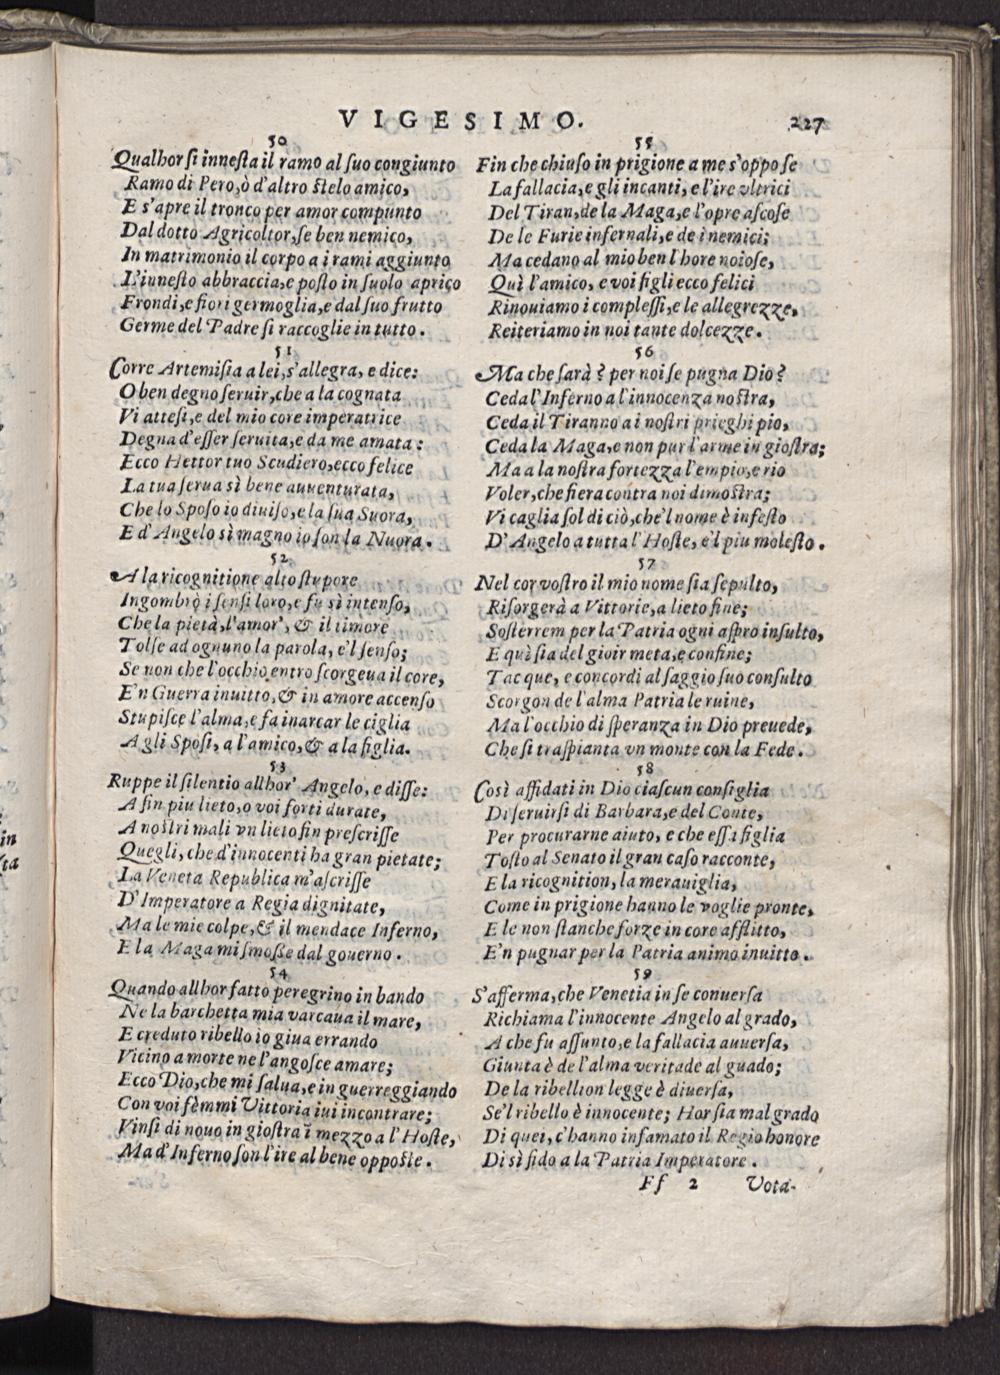 VIGESIMO. 227
50
Qualhor ſi inneſta il ramo al ſuo congiunto
Ramo di Pero, ò d'altro ſtelo amico,
E s'apre il tronco per amor compunto
Dal dotto Agricoltor, ſe ben nemico,
In matrimonio il corpo a i rami aggiunto
L'inneſto abbraccia, e poſto in ſuolo aprico
Frondi, e fiori germoglia, e dal ſuo frutto
Germe del Padre ſi raccoglie in tutto.
51
Corre Artemiſia a lei, s'allegra, e dice:
O ben degno ſeruir, che a la cognata
Vi atteſi, e del mio core imperatrice
Degna d'eſſer ſeruita, e da me amata:
Ecco Hettor tuo Scudiero, ecco felice
La tua ſerua sì bene auuenturata,
Che lo Spoſo io diuiſo, e la ſua Suora,
E d'Angelo sì magno io ſon la Nuora.
52
A la ricognitione alto ſtupore
Ingombrò i ſenſi loro, e fu sì intenſo,
Che la pietà, l'amor', & il timore
Tolſe ad ognuno la parola, e'l ſenſo;
Se non che l'occhio entro ſcorgeua il core,
E'n Guerra inuitto, & in amore accenſo
Stupiſce l'alma, e fa inarcar le ciglia
A gli Spoſi, a l'amico, & a la figlia.
53
Ruppe il ſilentio allhor' Angelo, e diſſe:
A fin piu lieto, o voi forti durate,
A noſtri mali vn lieto fin preſcriſſe
Quegli, che d'innocenti ha gran pietate;
La Veneta Republica m'aſcriſſe
D'Imperatore a Regia dignitate,
Ma le mie colpe, & il mendace Inferno,
E la Maga mi ſmoſſe dal gouerno.
54
Quando allhor fatto peregrino in bando
Ne la barchetta mia varcaua il mare,
E creduto ribello io giua errando
Vicino a morte ne l'angoſce amare;
Ecco Dio, che mi ſalua, e in guerreggiando
Con voi fèmmi Vittoria iui incontrare;
Vinſi di nouo in gioſtra ī mezzo a l'Hoſte,
Ma d'Inferno ſon l'ire al bene oppoſte.
55
Fin che chiuſo in prigione a me s'oppoſe
La fallacia, e gli incanti, e l'ire vltrici
Del Tiran, de la Maga, e l'opre aſcoſe
De le Furie infernali, e de i nemici;
Ma cedano al mio ben l'hore noioſe,
Quì l'amico, e voi figli ecco felici
Rinouiamo i compleſſi, e le allegrezze,
Reiteriamo in noi tante dolcezze.
56
Ma che ſarà? per noi ſe pugna Dio?
Ceda l'Inferno a l'innocenza noſtra,
Ceda il Tiranno ai noſtri prieghi pio,
Ceda la Maga, e non pur l'arme in gioſtra;
Ma a la noſtra fortezza l'empio, e rio
Voler, che fiera contra noi dimoſtra;
Vi caglia ſol di ciò, che'l nome è infeſto
D'Angelo a tutta l'Hoſte, e'l piu moleſto.
57
Nel cor voſtro il mio nome ſia ſepulto,
Riſorgerà a Vittorie, a lieto fine;
Soſterrem per la Patria ogni aſpro inſulto,
E quì ſia del gioir meta, e confine;
Tacque, e concordi al ſaggio ſuo conſulto
Scorgon de l'alma Patria le ruine,
Ma l'occhio di ſperanza in Dio preuede,
Che ſi traſpianta vn monte con la Fede.
58
Così affidati in Dio ciaſcun conſiglia
Di ſeruirſi di Barbara, e del Conte,
Per procurarne aiuto, e che eſſa figlia
Toſto al Senato il gran caſo racconte,
E la ricognition, la merauiglia,
Come in prigione hanno le voglie pronte,
E le non ſtanche forze in core afflitto,
E'n pugnar per la Patria animo inuitto.
59
S'afferma, che Venetia in ſe conuerſa
Richiama l'innocente Angelo al grado,
A che fu aſſunto, e la fallacia auuerſa,
Giunta è de l'alma veritade al guado;
De la ribellion legge è diuerſa,
Se'l ribello è innocente; Hor ſia mal grado
Di quei, c'hanno infamato il Regio honore
Di sì fido a la Patria Imperatore.
Ff 2 Vota-
in
ta